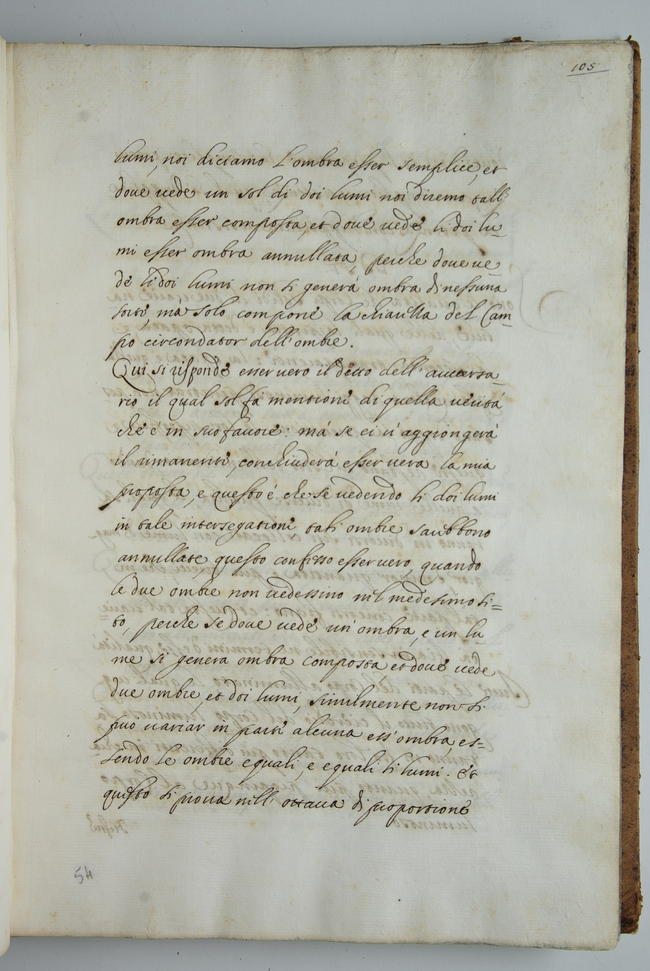 105
lumi, noi diciamo l'ombra esser semplice, et
dove vede un sol di doi lumi noi diremo tall'
ombra esser composta, et dove vede li doi lu=
mi esser ombra annullata, perche dove ve
de li doi lumi non si generá ombra di nessuna
sorte, má solo compone la del Cam=
po circondator dell'ombre.
Qui si rispondé esser vero il detto dell'aversa=
rio il qual sol fá mentione di quella veritá
ché é in suo favore: má se ci n'aggiongerá
il rimanente, conchiuderá esser vera la mia
proposta, e questo é che se vedendo li doi lumi
in tale intersegatione, tali ombre sarebbono
annullate, questo confesso esser vero, quando
le due ombre non vedessino nel medesimo si=
to, perche se dove vede un'ombra, e un lu
me si genera ombra composta et dove vede
due ombre, et doi lumi, similmente non si
può variar in parte alcuna ess'ombra, es=
sendo le ombre equali, e equali li lumi. Et
questo si prova nell'ottava di proportione
54